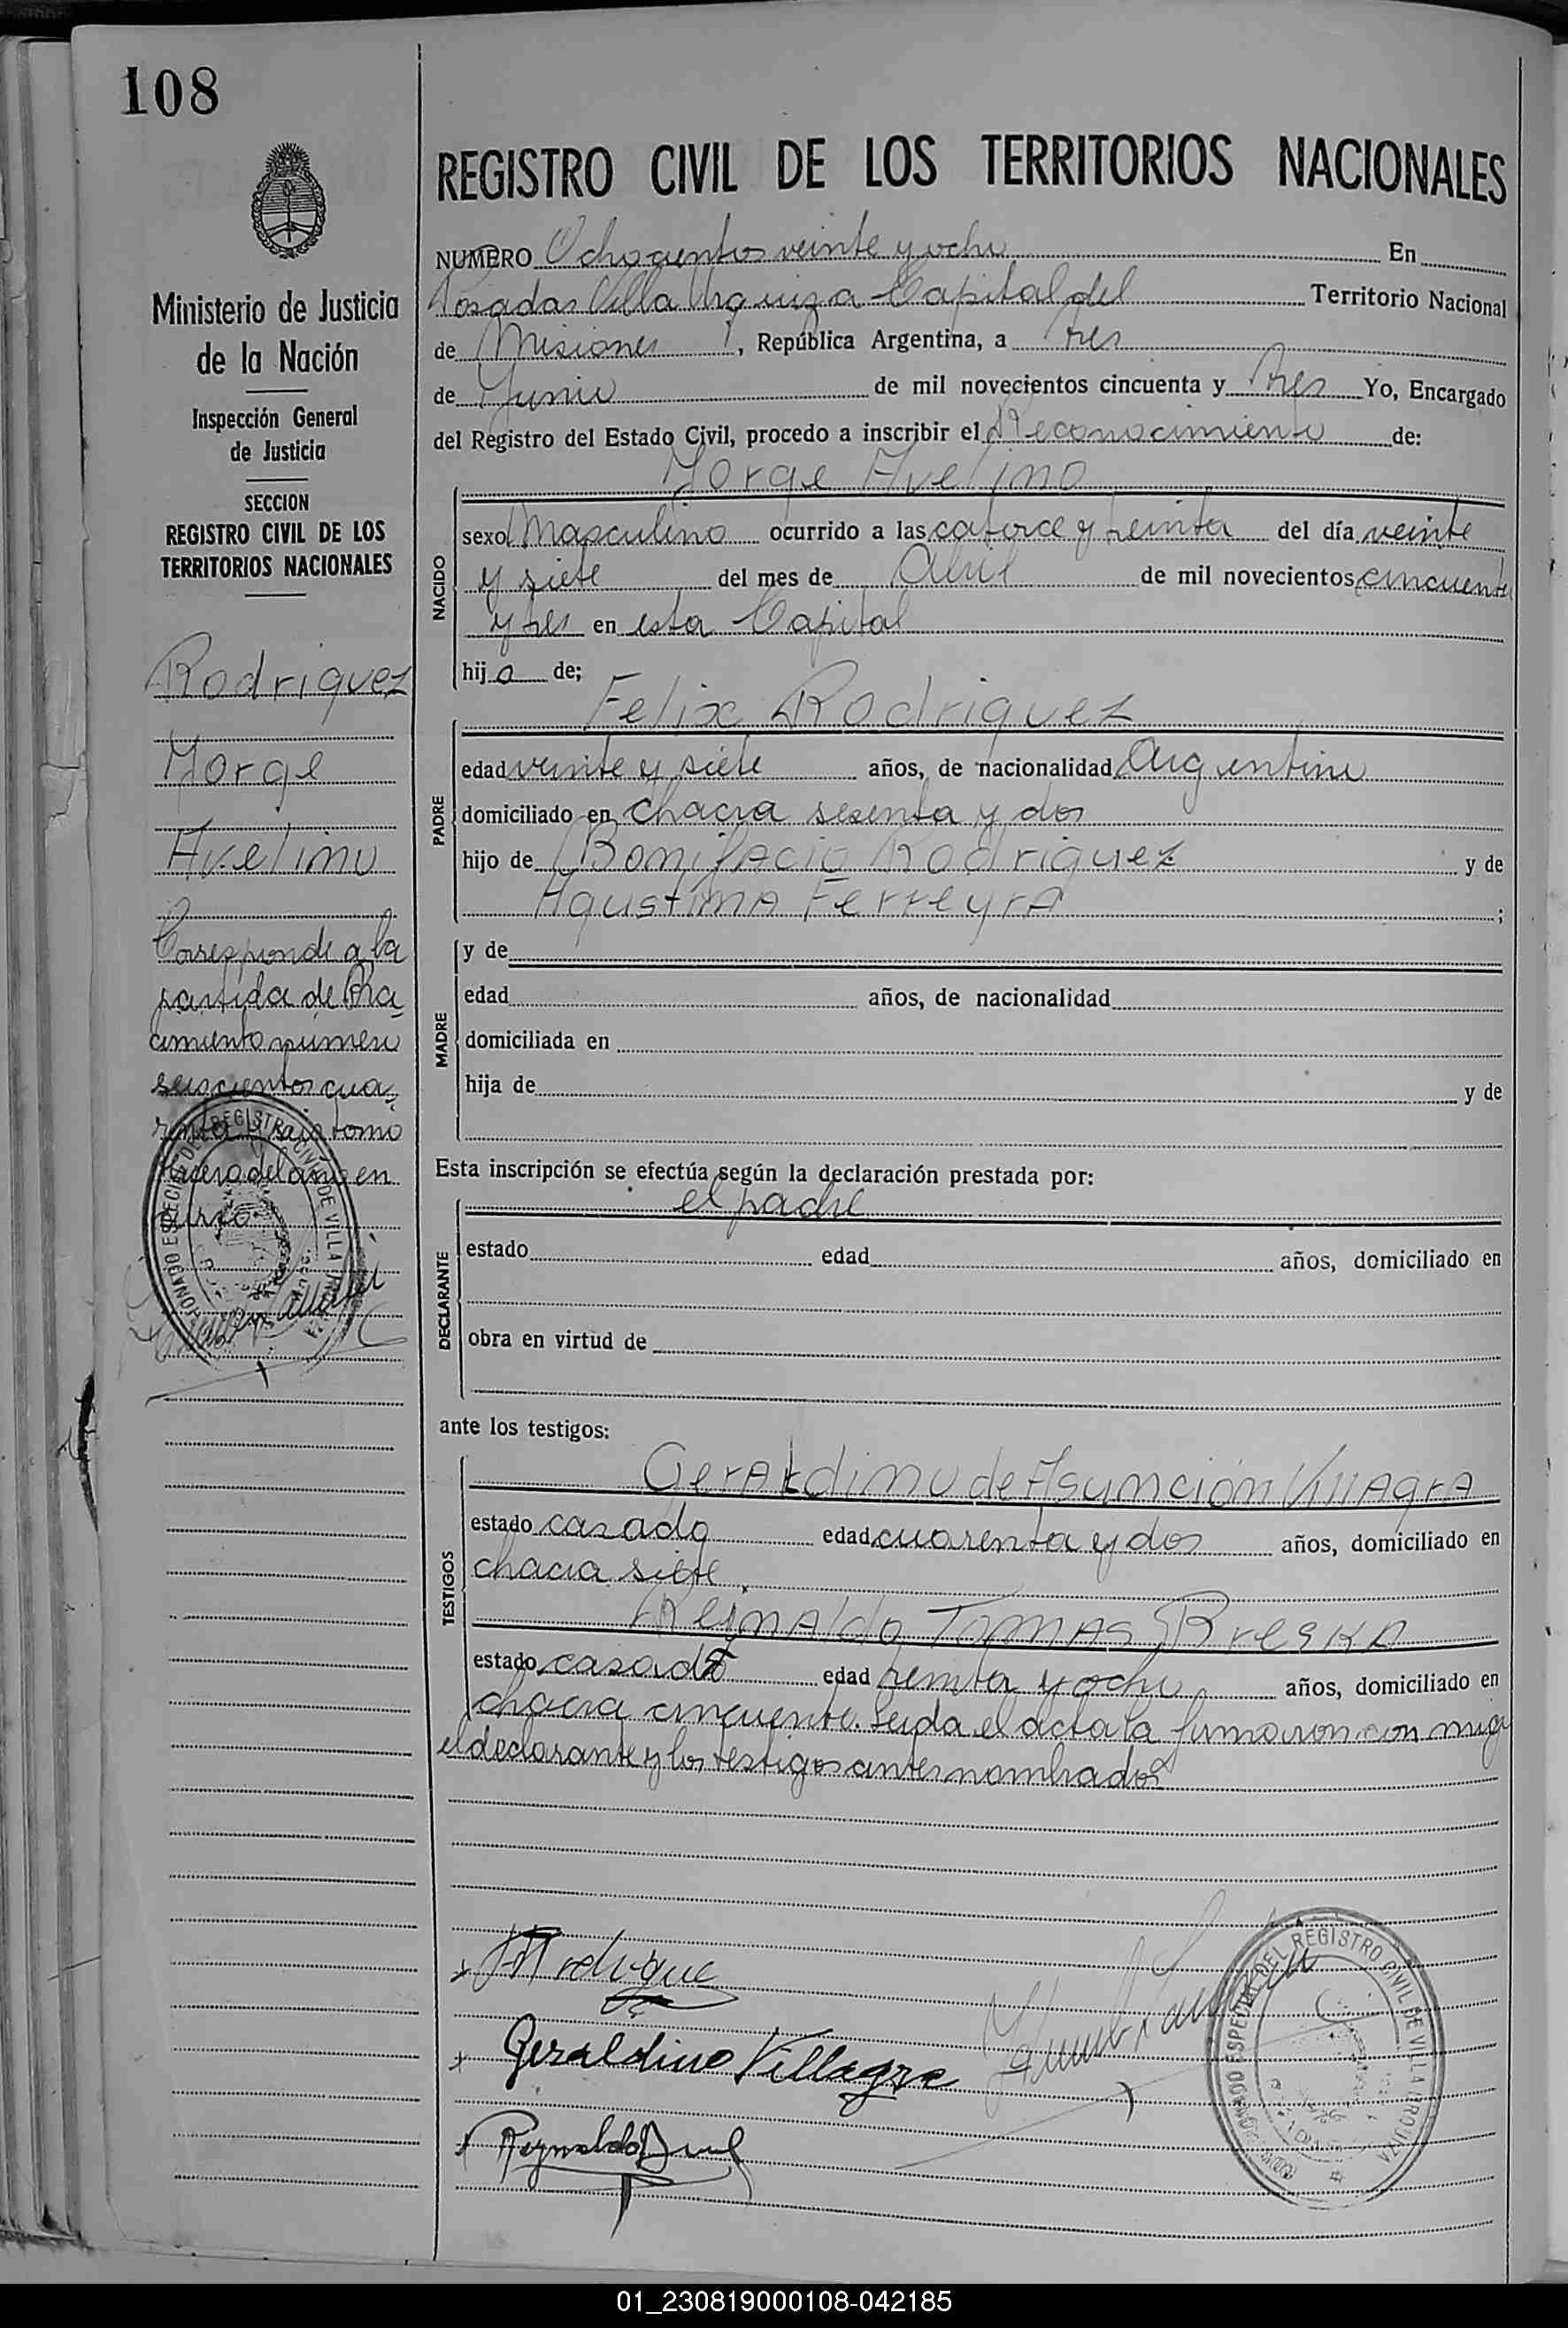 108
Ministerio de Justicia
de la Nación
Inspección General
de Justicia
SECCION
REGISTRO CIVIL DE LOS
TERRITORIOS NACIONALES
Rodriguez
Jorge
Avelino
Corresponde a la
partida de Na
cimiento número
seiscientos cua
renta y seis tomo
del año en
curso
REGISTRO CIVIL DE LOS TERRITORIOS NACIONALES
NUMERO Ochocientos veinte y ocho En
Posadas Villa Urquiza Capital del Territorio Nacional
de Misiones, República Argentina, a tres
de Junio de mil novecientos cincuenta y tres Yo, Encargado
del Registro del Estado Civil, procedo a inscribir el Reconocimiento de:
Jorge Avelino
NACIDO
sexo Masculino ocurrido a las catorce y treinta del día veinte
y siete del mes de Abril de mil novecientos cincuenta
y tres en esta Capital
hijo de;
Felix Rodriguez
PADRE
edad veinte y siete años, de nacionalidad Argentino
domiciliado en chacra sesenta y dos
hijo de Bonifacio Rodriguez y de
Agustina Ferreyra ;
MADRE
y de
edad años, de nacionalidad
domiciliada en
hija de y de
Esta inscripción se efectúa según la declaración prestada por:
el padre
DECLARANTE
estado edad años, domiciliado en
obra en virtud de
ante los testigos:
Gerardino de Asunción Villagra
TESTIGOS
estado casado edad cuarenta y dos años, domiciliado en
chacra siete.
Reinaldo Tomas Breska
estado casado edad treinta y ocho años, domiciliado en
chacra cincuenta. Leida el acta la firmaron con migo
el declarante y los testigos antes nombrados
Geraldino Villagra
Reynaldo
REGISTRO CIVIL DE VILLA URQUIZA
01_230819000108-042185